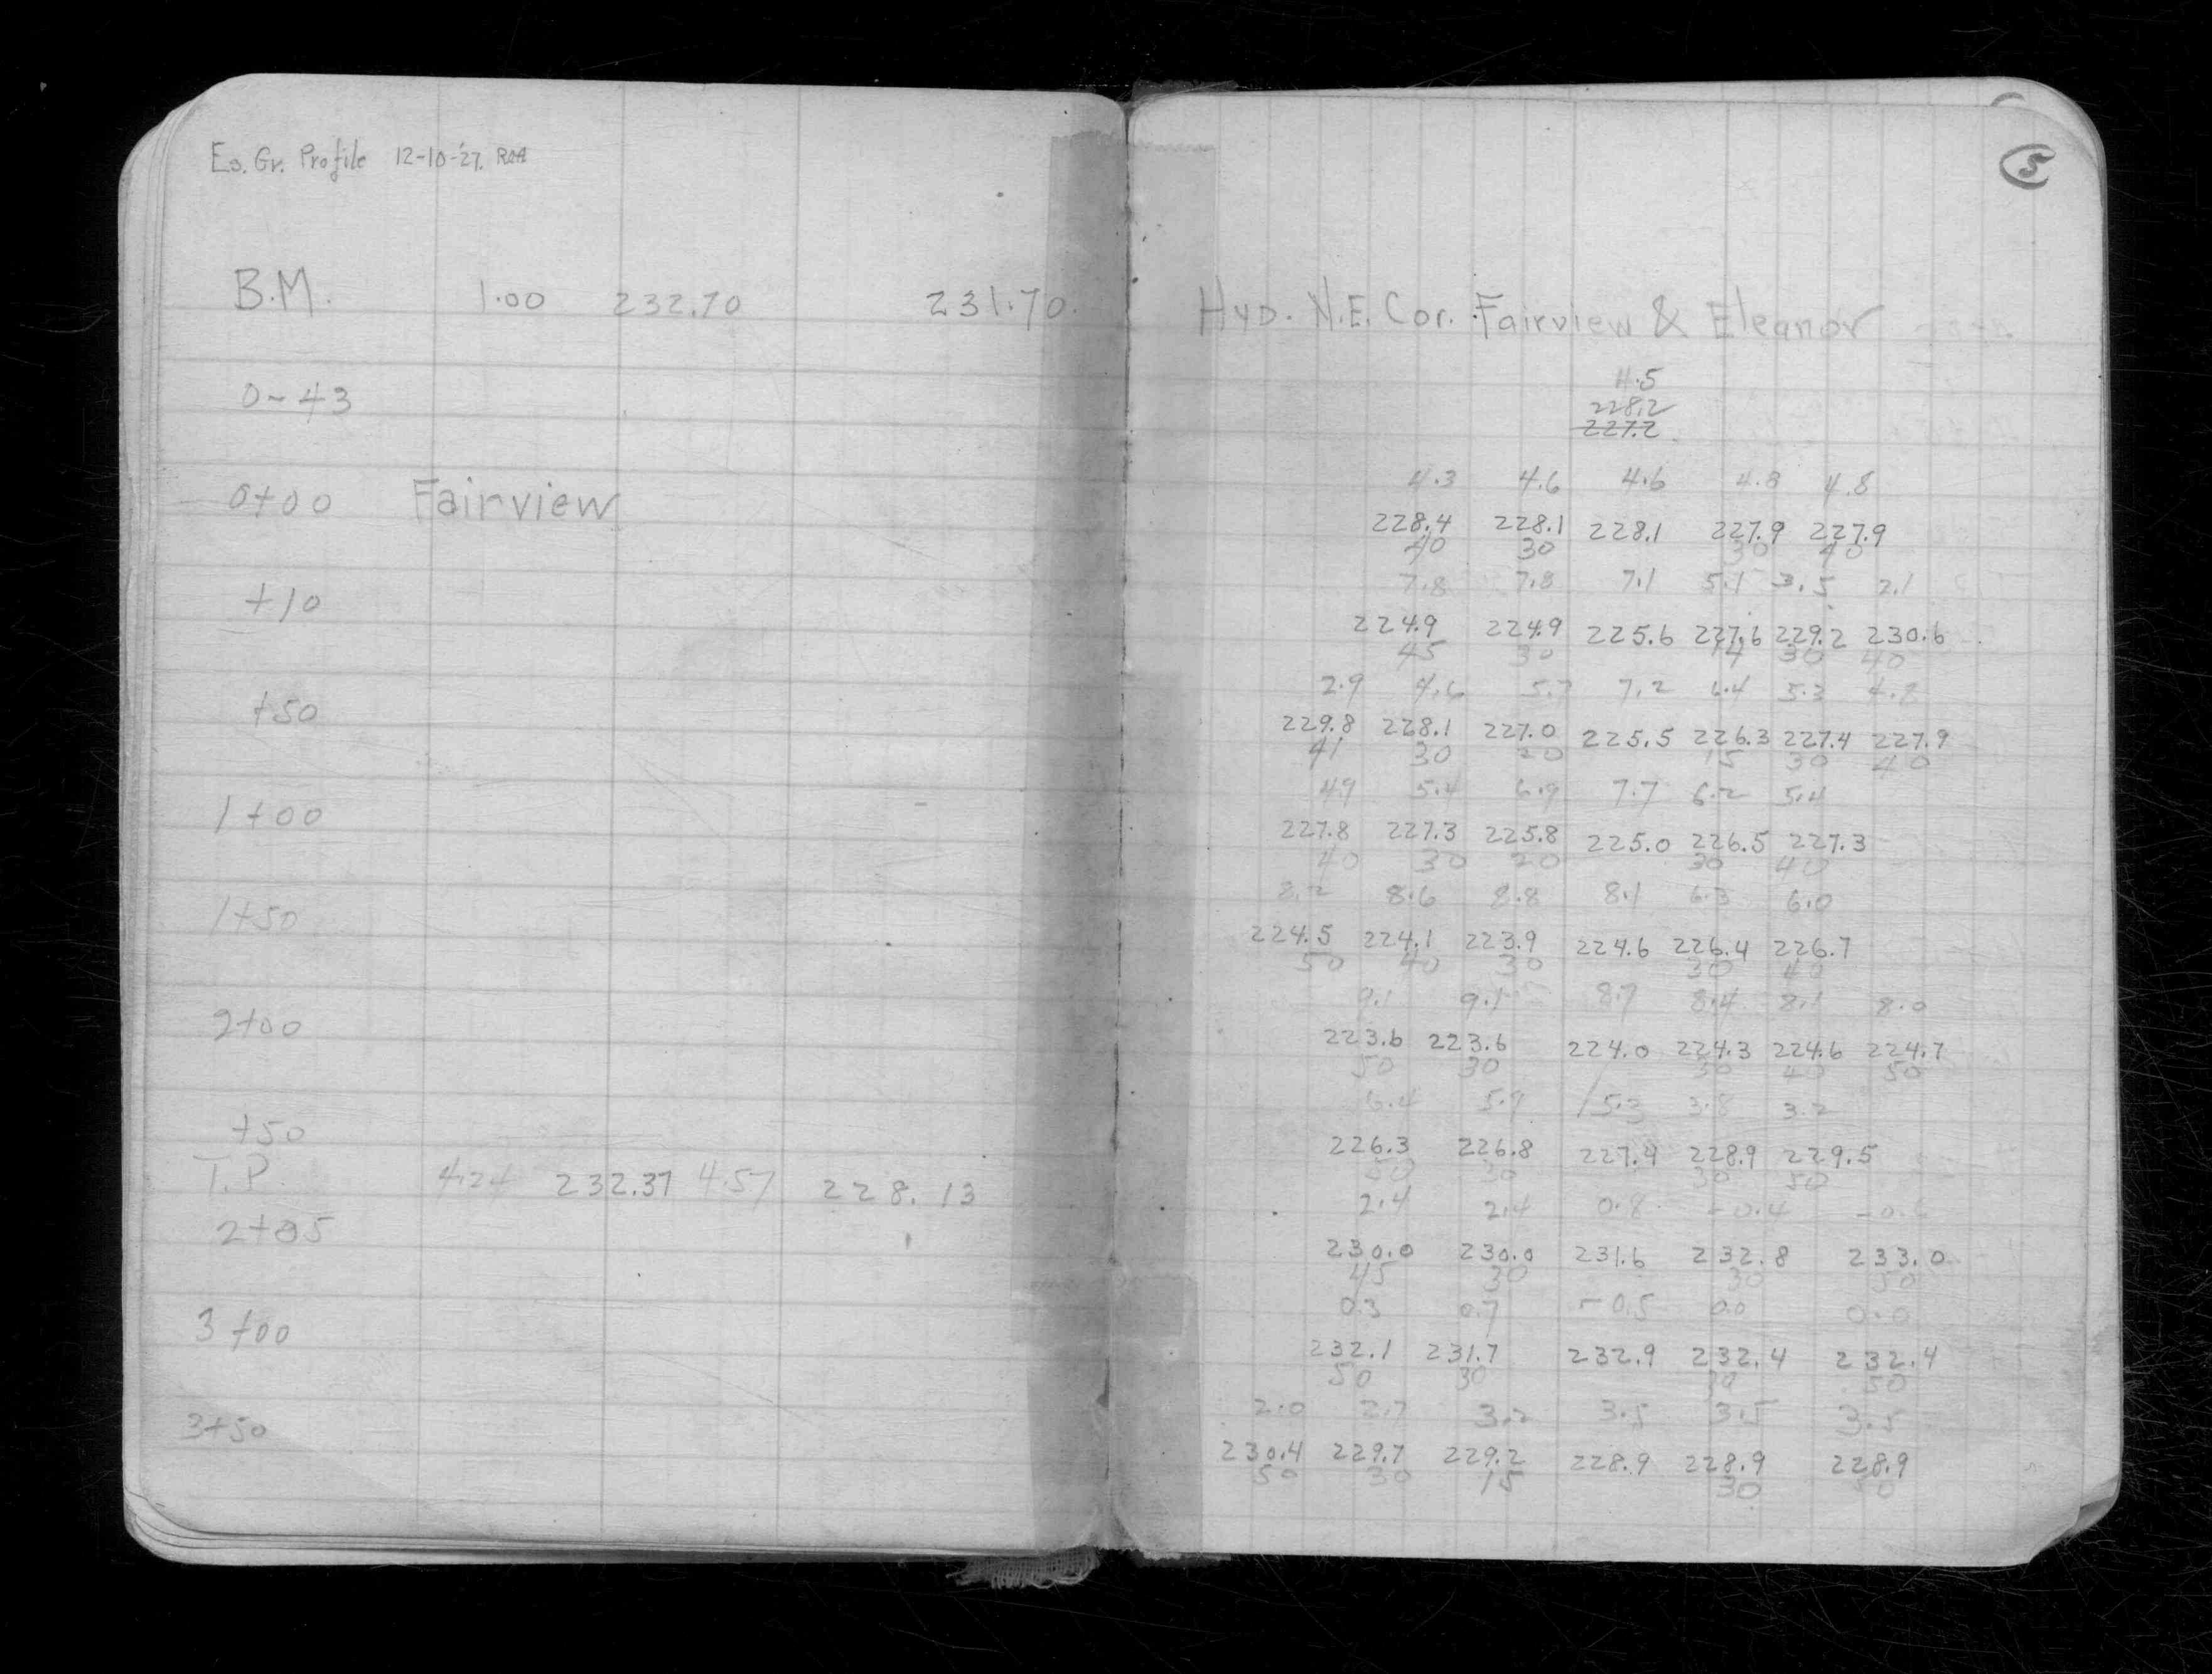 Es. Gr. Profile 12-10-'27. RAA
5
B.M. 1.00 232.70 231.70. Hyd. N.E. Cor. Fairview & Eleanor
4.5
0-43 228.2
227.2
4.3 4.6 4.6 4.8 4.8
0+00 Fairview 228.4 228.1 228.1 227.9 227.9
40 30 30 40
7.8 7.8 7.1 5.1 3.5 2.1
+10 224.9 224.9 225.6 227.6 229.2 230.6
45 30 14 30 40
2.9 4.6 5.7 7.2 6.4 5.3 4.8
+50 229.8 228.1 227.0 225.5 226.3 227.4 227.9
41 30 20 15 30 40
4.9 5.4 6.9 7.7 6.2 5.4
1+00 227.8 227.3 225.8 225.0 226.5 227.3
40 30 20 30 40
8.2 8.6 8.8 8.1 6.3 6.0
1+50 224.5 224.1 223.9 224.6 226.4 226.7
50 40 30 30 40
9.1 9.1 8.7 8.4 8.1 8.0
2+00 223.6 223.6 224.0 224.3 224.6 224.7
50 30 30 40 50
6.4 5.9 5.3 3.8 3.2
+50 226.3 226.8 227.4 228.9 229.5
50 30 30 50
T.P. 4.24 232.37 4.57 228.13
2.4 2.4 0.8 -0.4 -0.6
2+85 230.0 230.0 231.6 232.8 233.0
45 30 30 50
0.3 0.7 -0.5 0.0 0.0
3+00 232.1 231.7 232.9 232.4 232.4
50 30 30 50
2.0 2.7 3.2 3.5 3.5 3.5
3+50 230.4 229.7 229.2 228.9 228.9 228.9
50 30 15 30 50